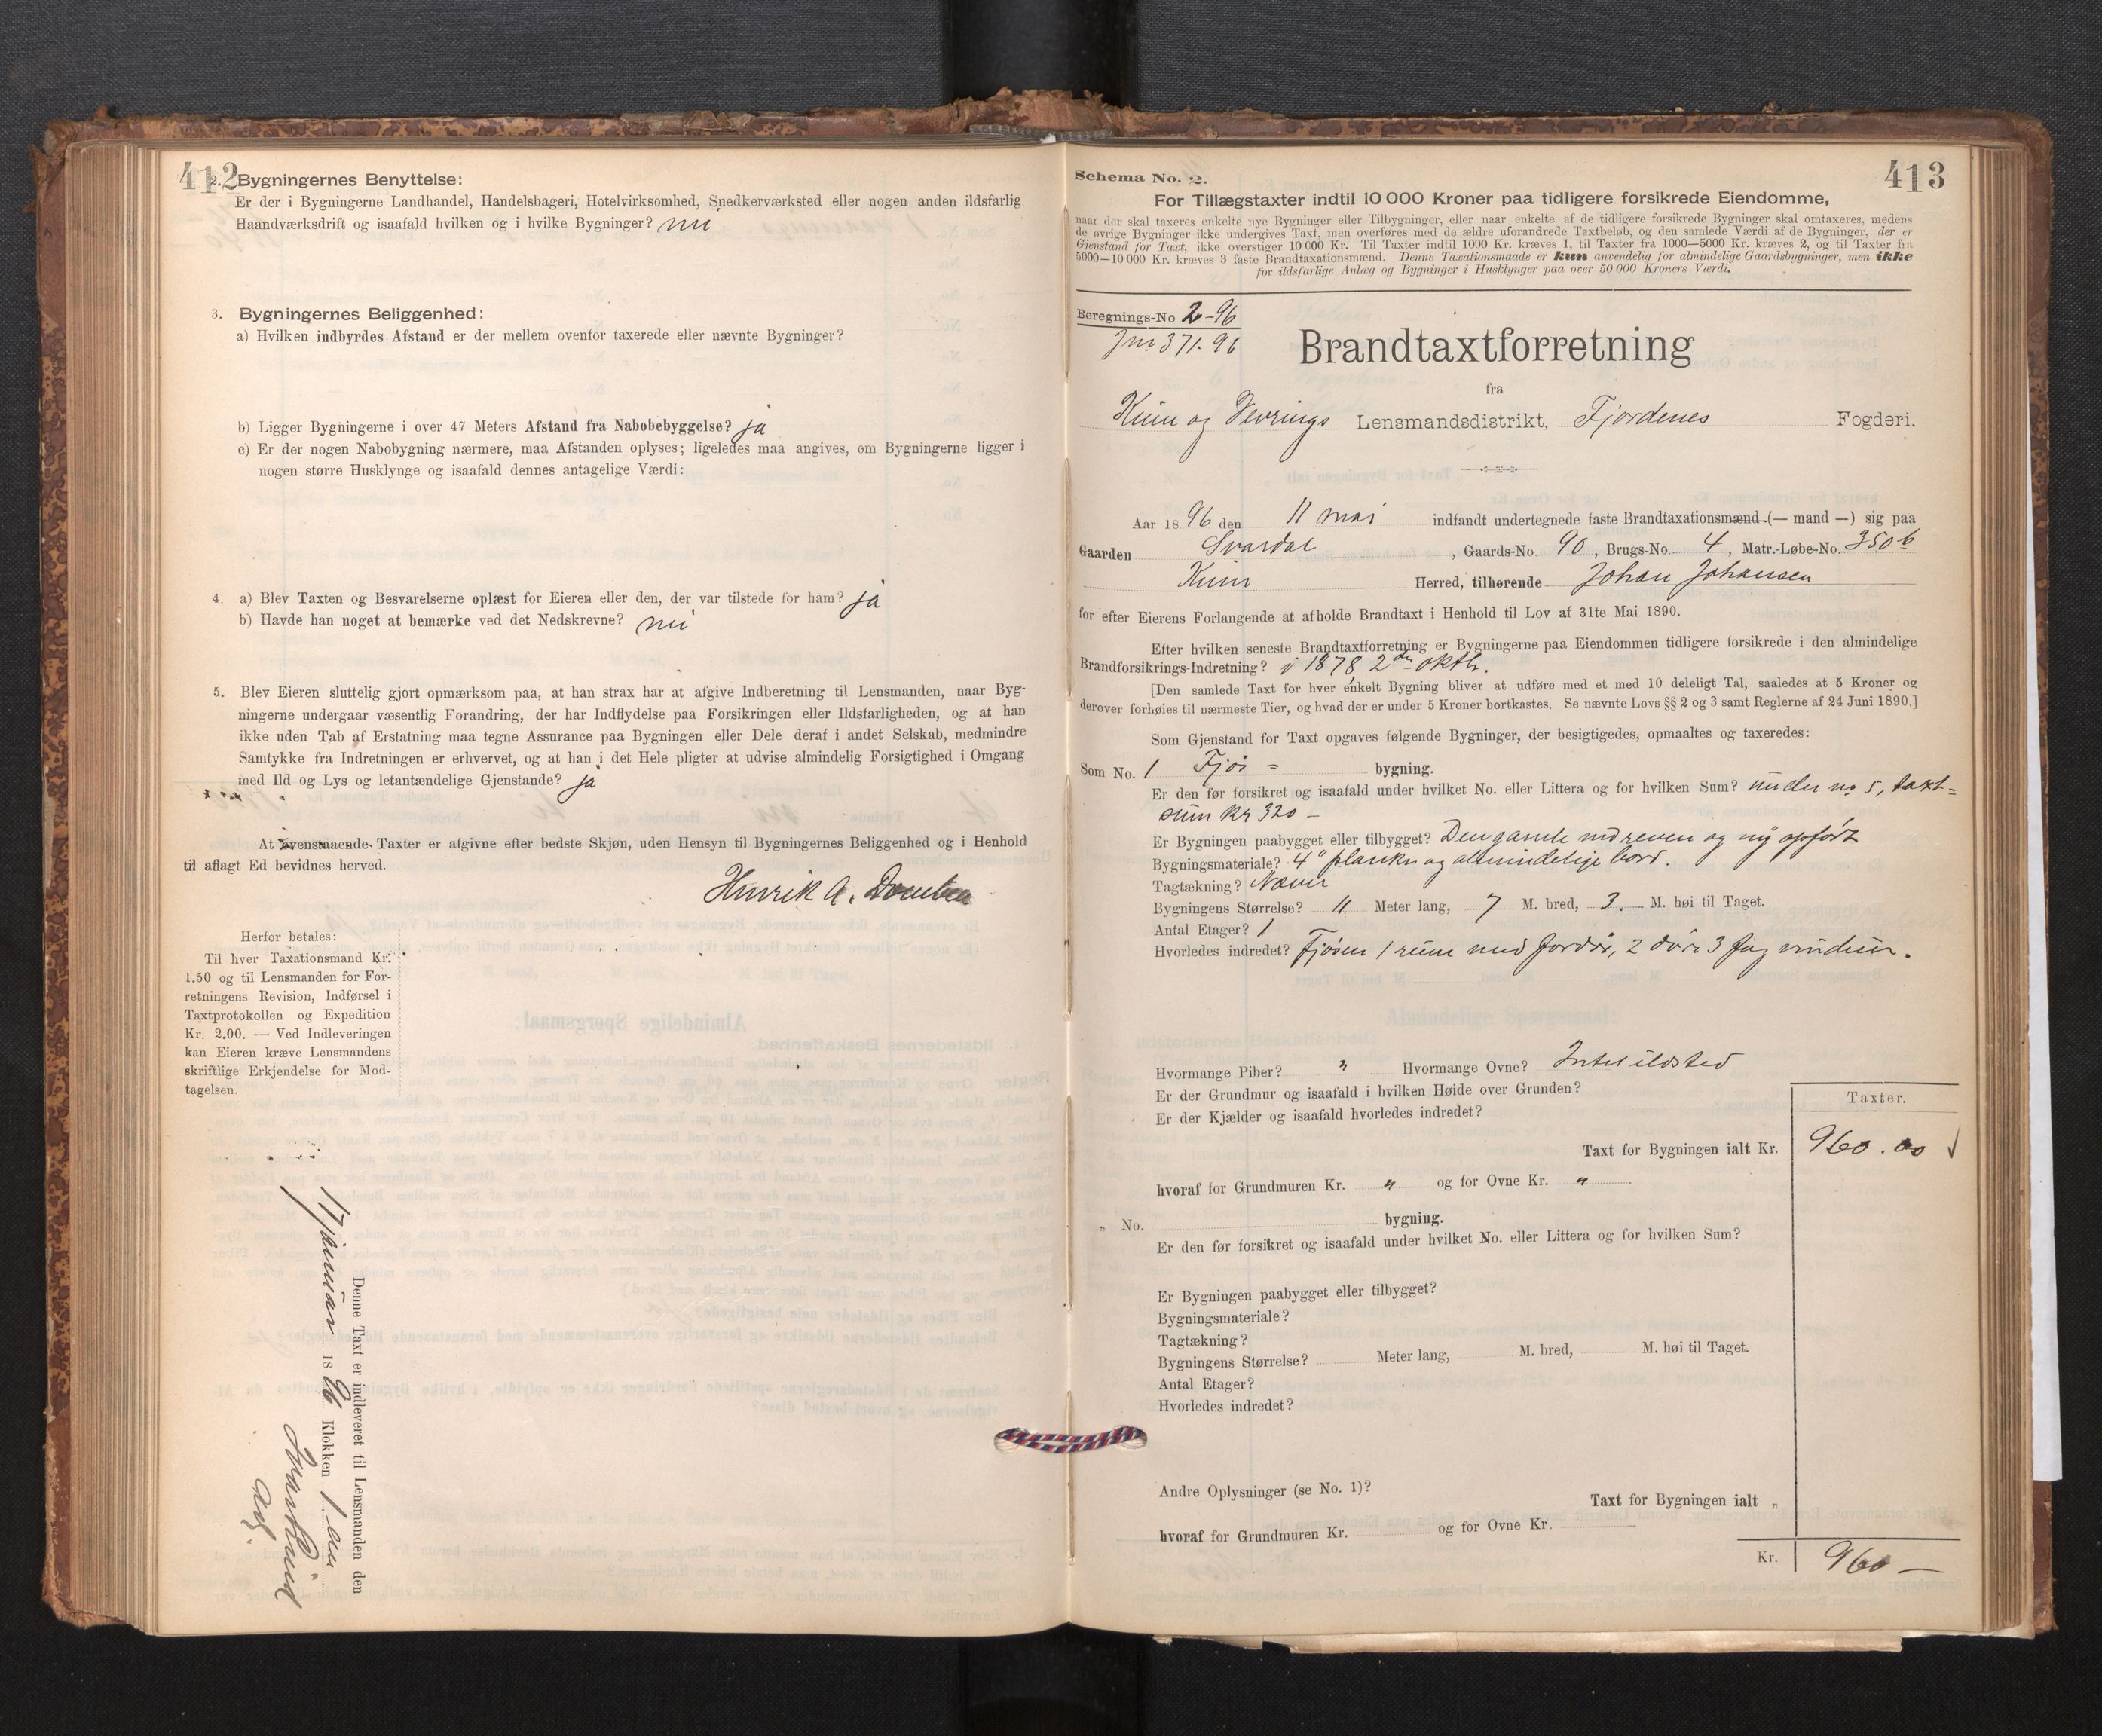 412
2. Bygningernes Benyttelse:
Er der i Bygningerne Landhandel, Handelsbageri, Hotelvirksomhed, Snedkerværksted eller nogen anden ildsfarlig
Haandværksdrift og isaafald hvilken og i hvilke Bygninger? nei
3. Bygningernes Beliggenhed:
a) Hvilken indbyrdes Afstand er der mellem ovenfor taxerede eller nævnte Bygninger?
b) Ligger Bygningerne i over 47 Meters Afstand fra Nabobebyggelse? ja
c) Er der nogen Nabobygning nærmere, maa Afstanden oplyses; ligeledes maa angives, om Bygningerne ligger i
nogen større Husklynge og isaafald dennes antagelige Værdi:
4. a) Blev Taxten og Besvarelserne oplæst for Eieren eller den, der var tilstede for ham? ja
b) Havde han noget at bemærke ved det Nedskrevne? nei
5. Blev Eieren sluttelig gjort opmærksom paa, at han strax har at afgive Indberetning til Lensmanden, naar Byg-
ningerne undergaar væsentlig Forandring, der har Indflydelse paa Forsikringen eller Ildsfarligheden, og at han
ikke uden Tab af Erstatning maa tegne Assurance paa Bygningen eller Dele deraf i andet Selskab, medmindre
Samtykke fra Indretningen er erhvervet, og at han i det Hele pligter at udvise almindelig Forsigtighed i Omgang
med Ild og Lys og letantændelige Gjenstande? ja
At ovenstaaende Taxter er afgivne efter bedste Skjøn, uden Hensyn til Bygningernes Beliggenhed og i Henhold
til aflagt Ed bevidnes herved.
Henrik A.
Herfor betales:
Til hver Taxationsmand Kr.
1.50 og til Lensmanden for For-
retningens Revision, Indførsel i
Taxtprotokollen og Expedition
Kr. 2.00. — Ved Indleveringen
kan Eieren kræve Lensmandens
skriftlige Erkjendelse for Mod-
tagelsen.
Denne Taxt er indleveret til Lensmanden den
17 januar 1896 Klokken 1
413
Schema No. 2.
For Tillægstaxter indtil 10 000 Kroner paa tidligere forsikrede Eiendomme,
naar der skal taxeres enkelte nye Bygninger eller Tilbygninger, eller naar enkelte af de tidligere forsikrede Bygninger skal omtaxeres, medens
de øvrige Bygninger ikke undergives Taxt, men overføres med de ældre uforandrede Taxtbeløb, og den samlede Værdi af de Bygninger, der er
Gjenstand for Taxt, ikke overstiger 10 000 Kr. Til Taxter indtil 1000 Kr. kræves 1, til Taxter fra 1000—5000 Kr. kræves 2, og til Taxter fra
5000—10 000 Kr. kræves 3 faste Brandtaxationsmænd. Denne Taxationsmaade er kun anvendelig for almindelige Gaardsbygninger, men ikke
for ildsfarlige Anlæg og Bygninger i Husklynger paa over 50 000 Kroners Værdi.
Beregnings-No 2-96
Jnr. 371.96
Brandtaxtforretning
fra
Kinn og Vevrings Lensmandsdistrikt, Fjordenes Fogderi.
Aar 1896 den 11 mai indfandt undertegnede faste Brandtaxationsmænd (— mand —) sig paa
Gaarden Svardal, Gaards-No. 90, Brugs-No. 4, Matr.-Løbe-No. 350 b
Kinn Herred, tilhørende Johan Johansen
for efter Eierens Forlangende at afholde Brandtaxt i Henhold til Lov af 31te Mai 1890.
Efter hvilken seneste Brandtaxtforretning er Bygningerne paa Eiendommen tidligere forsikrede i den almindelige
Brandforsikrings-Indretning? i 1878 2den oktb.
[Den samlede Taxt for hver enkelt Bygning bliver at udføre med et med 10 deleligt Tal, saaledes at 5 Kroner og
derover forhøies til nærmeste Tier, og hvad der er under 5 Kroner bortkastes. Se nævnte Lovs §§ 2 og 3 samt Reglerne af 24 Juni 1890.]
Som Gjenstand for Taxt opgaves følgende Bygninger, der besigtigedes, opmaaltes og taxeredes:
Som No. 1 Fjøs = bygning.
Er den før forsikret og isaafald under hvilket No. eller Littera og for hvilken Sum? under no 5, taxt=
sum kr 320 —
Er Bygningen paabygget eller tilbygget? Den gamle nedreven og ny opført
Bygningsmateriale? 4" planker og almindelige bord.
Tagtækning? Næver
Bygningens Størrelse? 11 Meter lang, 7 M. bred, 3. M. høi til Taget.
Antal Etager? 1
Hvorledes indredet? Fjøsen 1 rum med fordør, 2 døre 3 fag vinduer.
Hvormange Piber? " Hvormange Ovne? Intet ildsted
Er der Grundmur og isaafald i hvilken Høide over Grunden?
Er der Kjælder og isaafald hvorledes indredet?
Taxter.
Taxt for Bygningen ialt Kr. 960.00
hvoraf for Grundmuren Kr. " og for Ovne Kr. "
" No. bygning.
Er den før forsikret og isaafald under hvilket No. eller Littera og for hvilken Sum?
Er Bygningen paabygget eller tilbygget?
Bygningsmateriale?
Tagtækning?
Bygningens Størrelse? Meter lang, M. bred, M. høi til Taget.
Antal Etager?
Hvorledes indredet?
Andre Oplysninger (se No. 1)?
Taxt for Bygningen ialt "
hvoraf for Grundmuren Kr. og for Ovne Kr.
Kr. 960 —